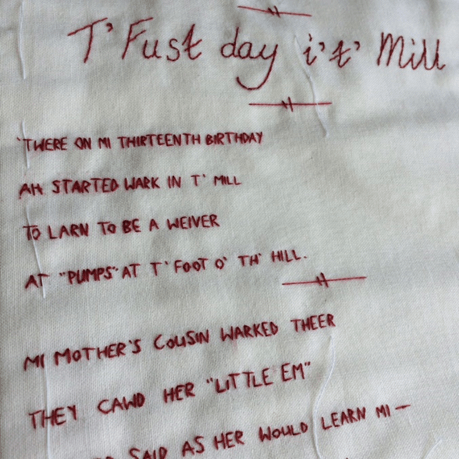 T' Fust day i' t' Mill
'THERE ON MI THIRTEENTH BIRTHDAY
AH STARTED WARK IN T' MILL
TO LARN TO BE A WEIVER
AT "PUMPS" AT T' FOOT O' TH' HILL.
MI MOTHER'S COUSIN WARKED THEER
THEY CAWD HER "LITTLE EM"
SAID AS HER WOULD LEARN MI —